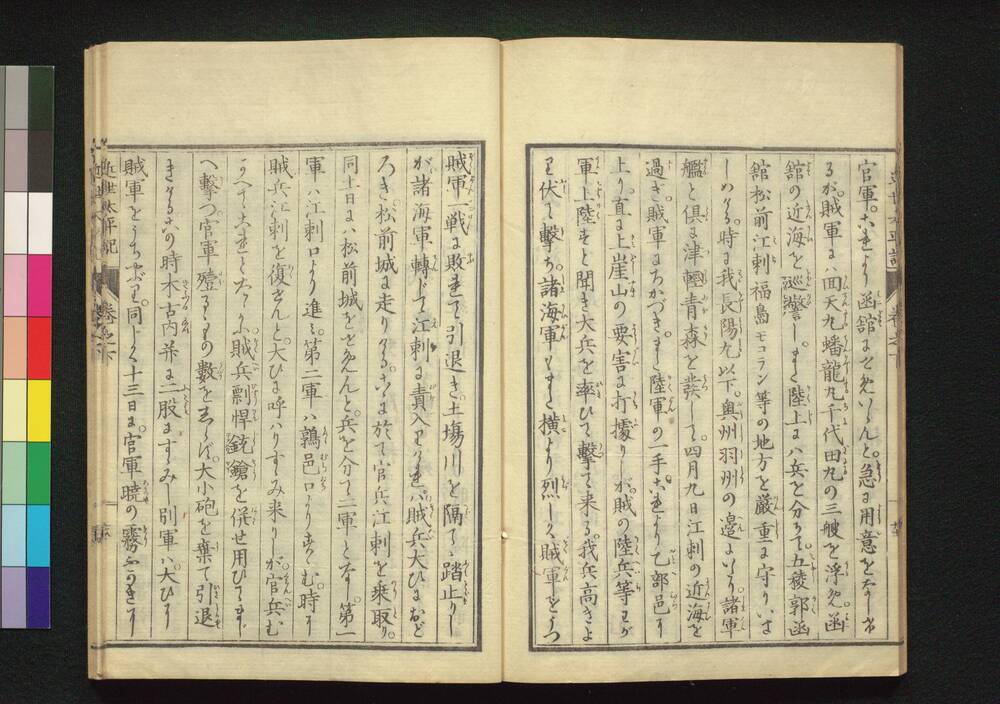 官軍。是より函舘にせめいらんと。急に用意をなしけ
るが。賊軍には回天丸蟠龍丸千代田丸の三艘を浮め。函
舘の近海を巡警し。また陸上には兵を分ちて。五稜郭函
舘松前江刺福島モコラン等の地方を厳重に守りいま
しめける。時に我長陽丸以下。奥州羽州の邊よりの諸軍
艦と倶に津軽青森を發して。四月九日江刺の近海を
過ぎ。賊軍にちかづき。また陸軍の一手はこれより乙部邑に
上り。直に上崖山の要害に打據りしが。賊の陸兵等わが
軍上陸すと聞き大兵を率ひて撃て来る。我兵高きよ
り伏て撃ち。諸海軍もまた横より烈しく賊軍をうつ
賊軍一戦に敗れて引退き。土塲川を隔てゝ踏止りし
が諸海軍轉じて江刺に責入りければ。賊兵大ひにおど
ろき松前城に走りける。こゝに於て官兵江刺を乗取り。
同十一日には松前城をせめんと。兵を分て二軍となし。第一
軍ハ江刺口より進ミ。第二軍ハ鶉邑口よりすゝむ。時に
賊兵江刺を復さんと。大ひに呼ハりすゝみ来りしが。官兵む
かへてこれとたゝかふ賊兵剽悍銃鎗を併せ用ひてたゝか
へ撃つ官軍殪るゝもの數をしらず。大小砲を棄て引退
きけるこの時木古内并に二股にすゝみし別軍ハ。大ひに
賊軍をうちやぶり。同しく十三日に。官軍暁の霧ふかきに
近世太平記
巻之下